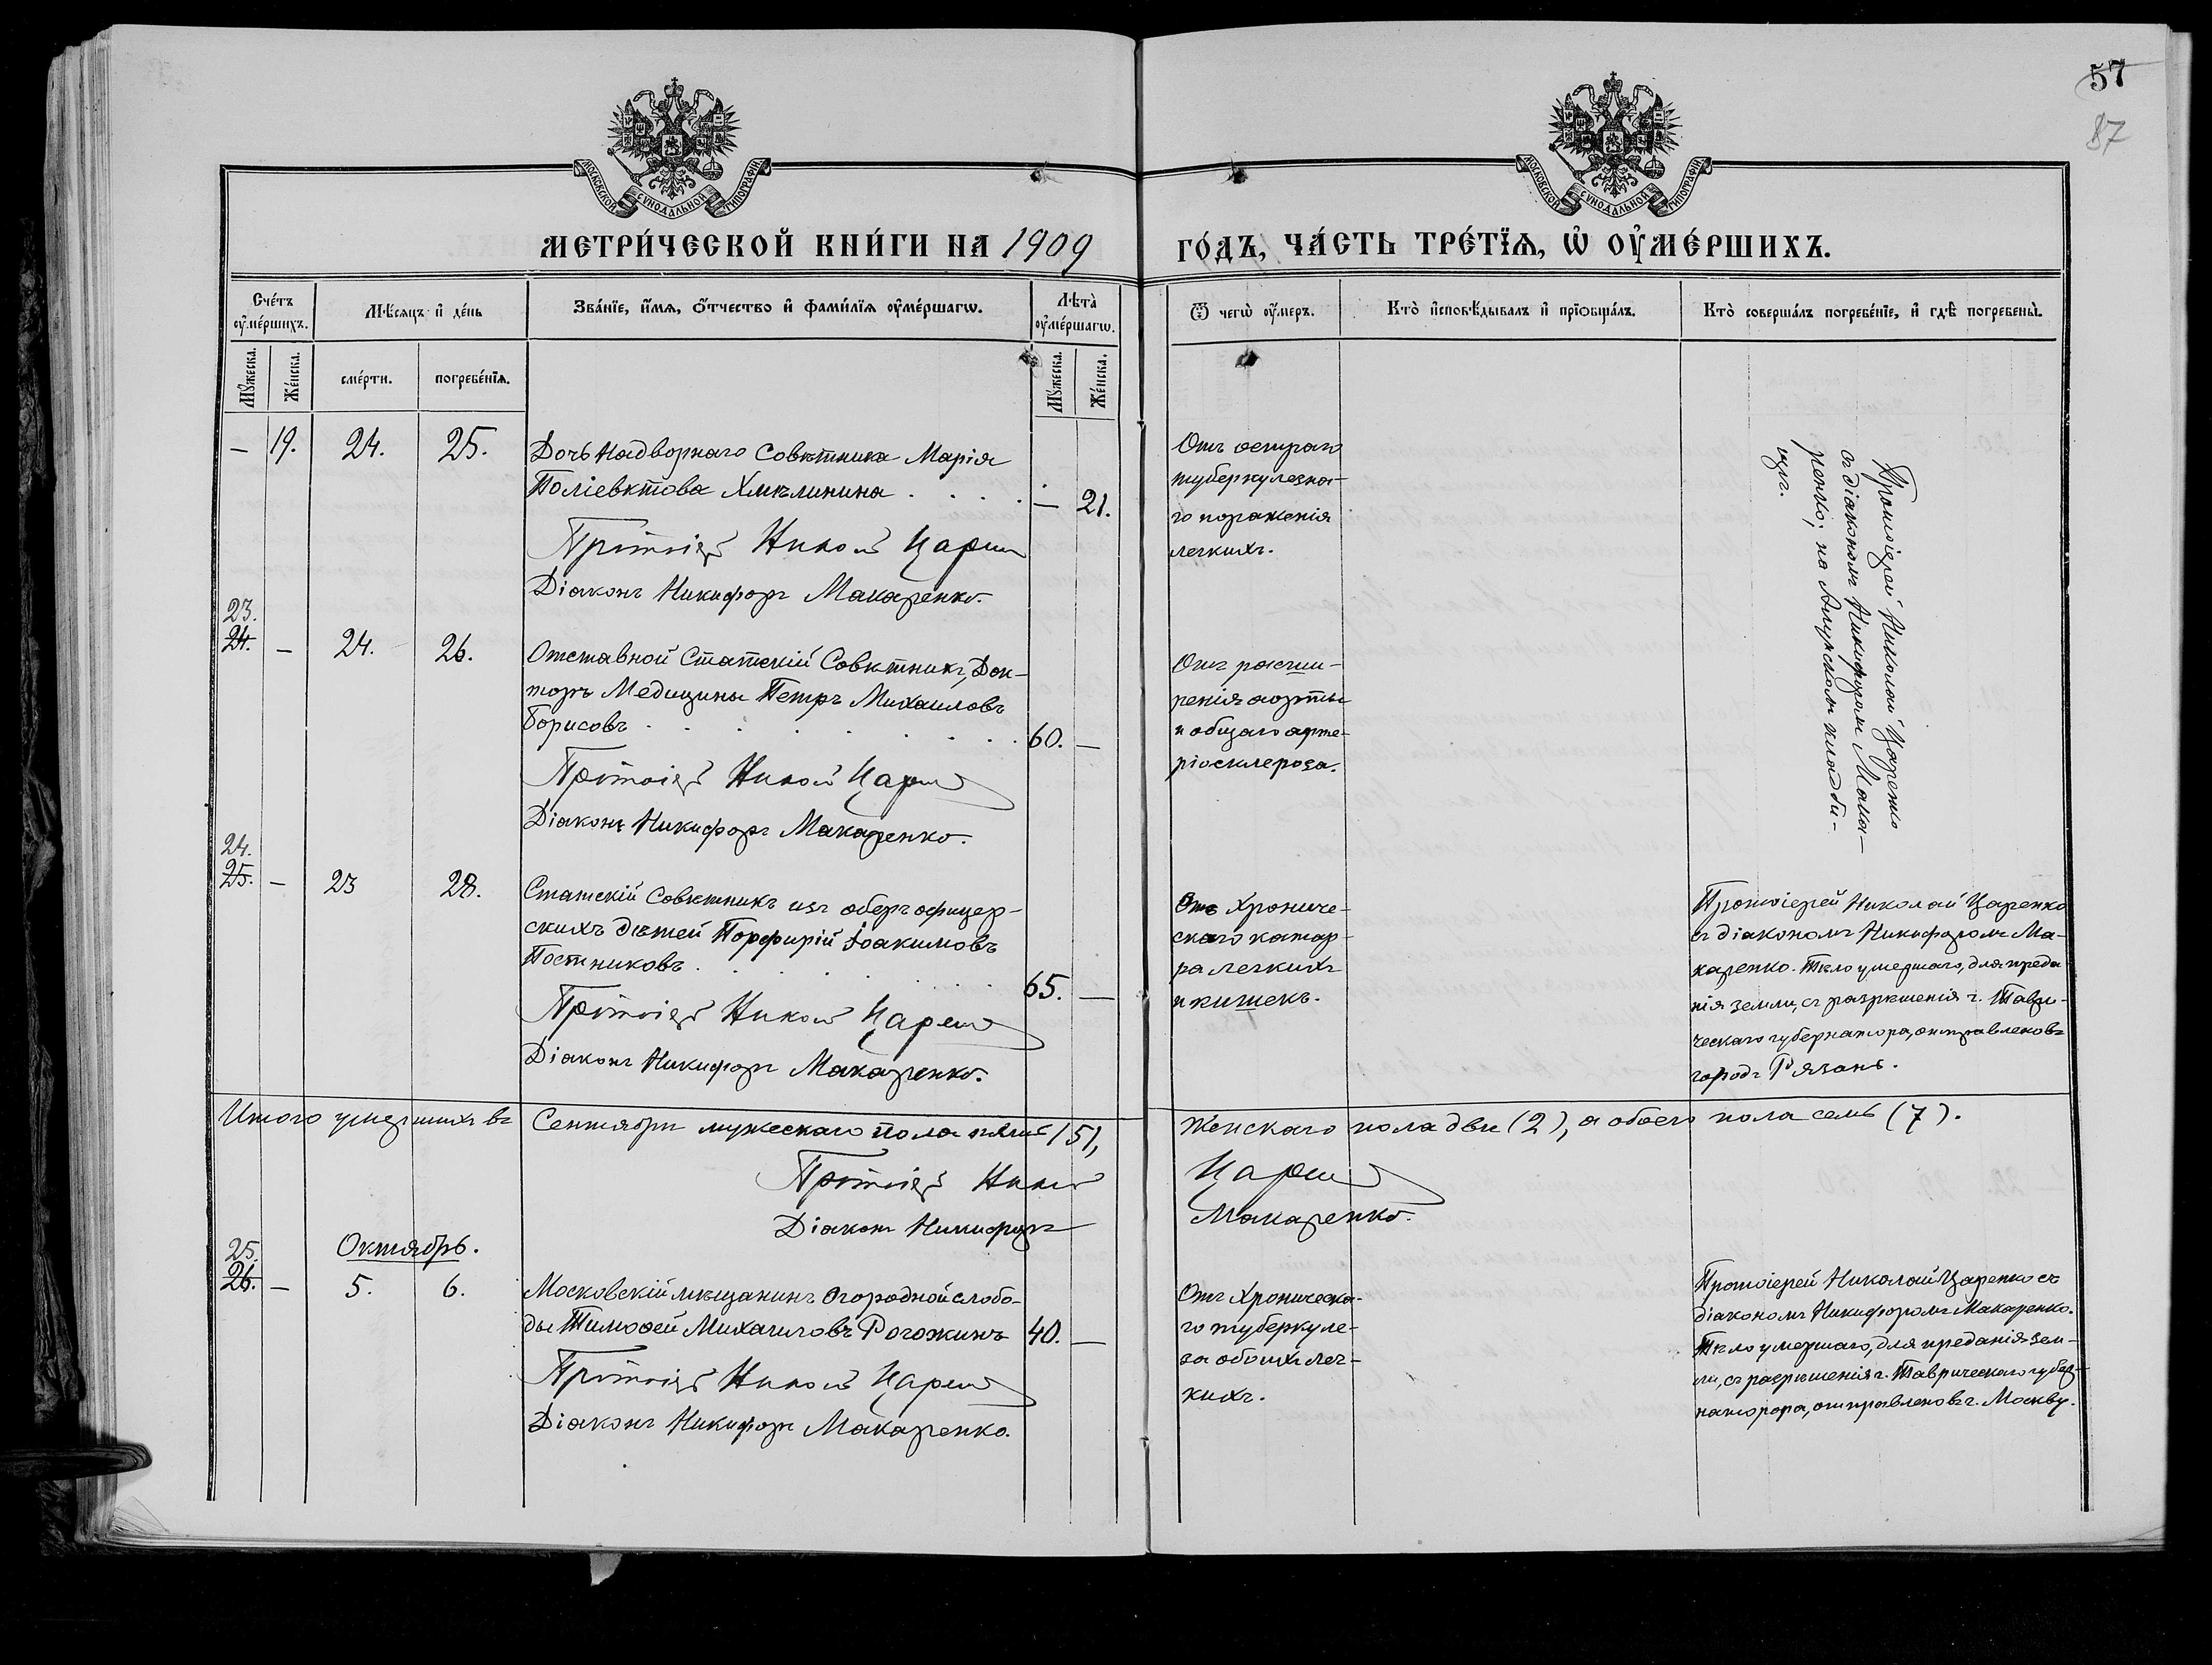 57
87
МОСКОВСКОЙ СѴНОДАЛЬНОЙ ТИПОГРАФІИ
МОСКОВСКОЙ СѴНОДАЛЬНОЙ ТИПОГРАФІИ
МЕТРИ́ЧЕСКОЙ КНИ́ГИ НА 1909
ГО́ДЪ, ЧА́СТЬ ТРЕ́ТЇѦ, Ѡ҆ ОУ҆МЕ́РШИХЪ.
Сче́тъ оу҆ме́ршихъ.
Мѣ́сяцъ и҆ де́нь
Зва́нїе, и҆́мѧ, ѻ҆́тчество и҆ фами́лїѧ оу҆ме́ршагѡ.
Лѣ́та оу҆ме́ршагѡ.
Ѿ чегѡ̀ оу҆́меръ.
Кто̀ и҆сповѣ́дывалъ и҆ прїѡбща́лъ.
Кто̀ соверша́лъ погребе́нїе, и҆ гдѣ̀ погребены̀.
Му́жеска.
Же́нска.
сме́рти.
погребе́нїѧ.
Му́жеска.
Же́нска.
— 19. 24. 25. Дочь Надворнаго Совѣтника Марія
Поліевктова Хмѣлинина . . . . — 21.
Протоіер Никол Царен
Діаконъ Никифоръ Макаренко.
Отъ остраго
туберкулезна-
го пораженія
легкихъ.
Протоіерей Николай Царенко
съ діакономъ Никифоромъ Мака-
ренко; на Аутскомъ кладби-
щѣ.
23.
24. — 24. 26. Отставной Статскій Совѣтникъ, Док-
торъ Медицины Петръ Михаиловъ
Борисовъ . . . . . . . 60. —
Протоіер Никол Царен
Діаконъ Никифоръ Макаренко.
Отъ расши-
ренія аорты
и общаго арте-
ріосклероза.
24.
25. — 23 28. Статскій Совѣтникъ изъ оберъ офицер-
скихъ дѣтей Порфирій Іоакимовъ
Постниковъ . . . . . . 65. —
Протоіер Никол Царен
Діаконъ Никифоръ Макаренко.
Отъ Хрониче-
скаго катар-
ра легкихъ
и кишекъ.
Протоіерей Николай Царенко
съ діакономъ Никифоромъ Ма-
каренко. Тѣло умершаго, для преда
нія земли, съ разрѣшенія г. Таври-
ческаго губернатора, отправлено въ
городъ Рязань.
Итого умершихъ въ Сентябрѣ мужескаго пола пять (5), Женскаго пола двѣ (2), а обоего пола семь (7).
Протоіер Никол Царен
Діаконъ Никифоръ Макаренко.
Октябрь.
25.
26. — 5. 6. Московскій мѣщанинъ Огородной слобо-
ды Тимоѳей Михаиловъ Рогожинъ 40. —
Протоіер Никол Царен
Діаконъ Никифоръ Макаренко.
Отъ Хроническа-
го туберкуле-
за обоихъ лег-
кихъ.
Протоіерей Николай Царенко съ
діакономъ Никифоромъ Макаренко.
Тѣло умершаго, для преданія зем-
ли, съ разрѣшенія г. Таврическаго губер-
наторора, отправлено въ г. Москву.